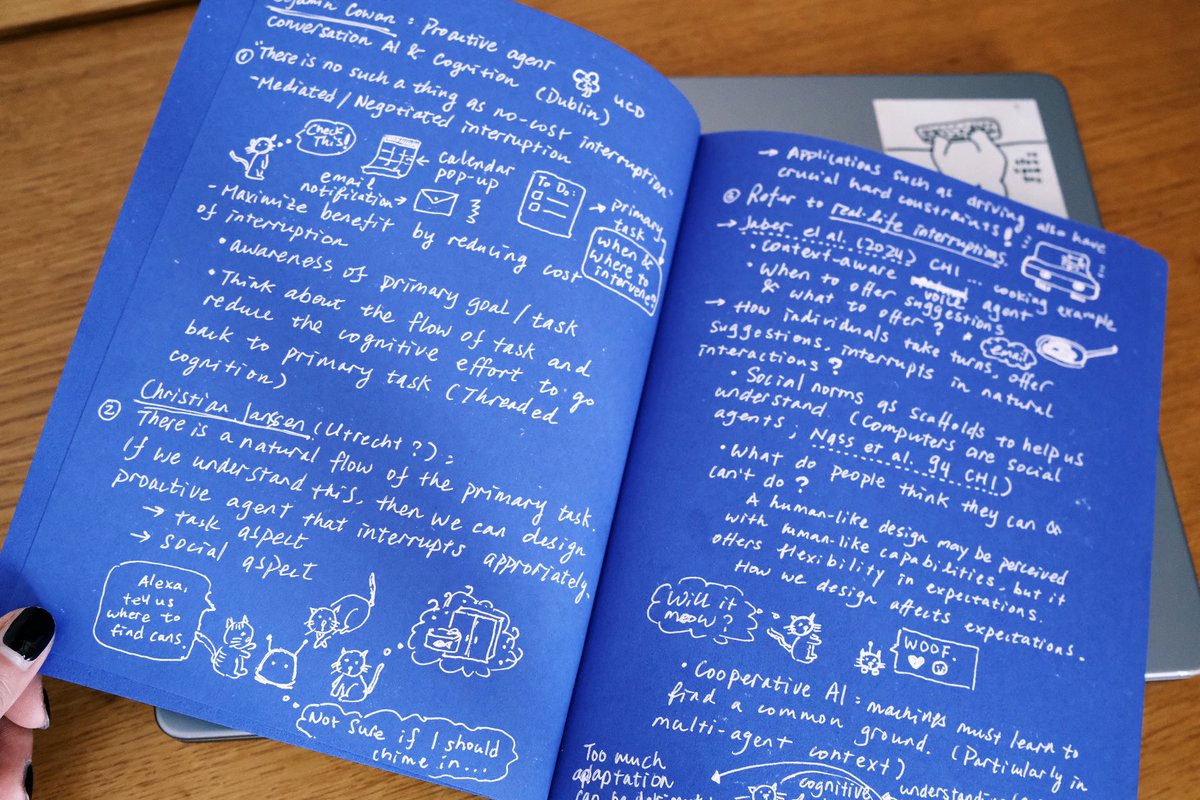 Cowan : Proactive agent
conversation AI & Cognition (Dublin) UCD
① "There is no such a thing as no-cost interruption"
- Mediated / Negotiated interruption
Check This!
calendar pop-up
email notification →
To Do:
→ primary task
when & where to intervene?
- Maximize benefit by reducing cost of interruption
• awareness of primary goal / task
• Think about the flow of task and
reduce the cognitive effort to go
back to primary task (Threaded
cognition)
② Christian Janssen (Utrecht ?) :
There is a natural flow of the primary task.
If we understand this, then we can design
proactive agent that interrupts approriately.
→ task aspect
→ social aspect
Alexa,
tell us
where to
find cans.
Not sure if I should
chime in...
→ Applications such as driving also have
crucial hard constraints!
③ Refer to real-life interruptions.
→ Jaber et al. (2024) CHI ... cooking example
• Context-aware voice agent
• When to offer suggestions
& what to offer ?
email
→ How individuals take turns, offer
suggestions, interrupts in natural
interactions ?
• Social norms as scaffolds to help us
understand. (Computers are social
agents ; Nass et al. 94 CHI)
• What do people think they can &
can't do ?
A human-like design may be perceived
with human-like capabilities, but it
offers flexibility in expectations.
How we design affects expectations.
Will it
meow ?
WOOF.
• Cooperative AI : machines must learn to
find a common ground. (Particularly in
multi-agent context)
Too much
adaptation
can be
cognitive